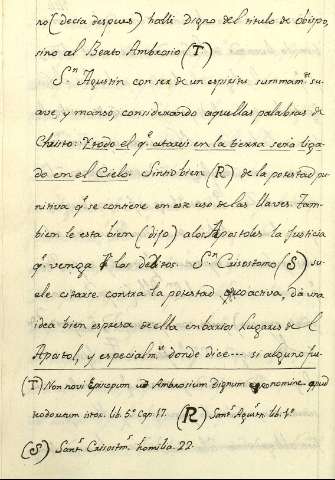 no (decia despues) halle digno del titulo de obispo,
sino al Beato Ambrosio (T)
Sn Agustin con ser de un espiritu summamte su-
ave, y manso, considerando aquellas palabras de
Christo: Ytodo el q atareis en la tierra sera liga-
do en el Cielo. Sintio bien (R) de la potestad pu-
nitiva q se contiene en este uso de las llaves. Tam-
bien le esta bien (dijo) alos Apostoles la Justicia
q venga los delitos. Sn Crisostomo (S) su-
ele citarse contra la potestad coactiva, dá una
idea bien expresa de ella en barios Lugares de l
Apostol, y especialmte donde dice--- si alguno fu-
(T) Non novi Episcopum Ambrosium dignum nomine apud
istor. lib. 5º Cap. 17. (R) Sant Agustn lib. 1º
(S) Sant Crisostm homilia 22.